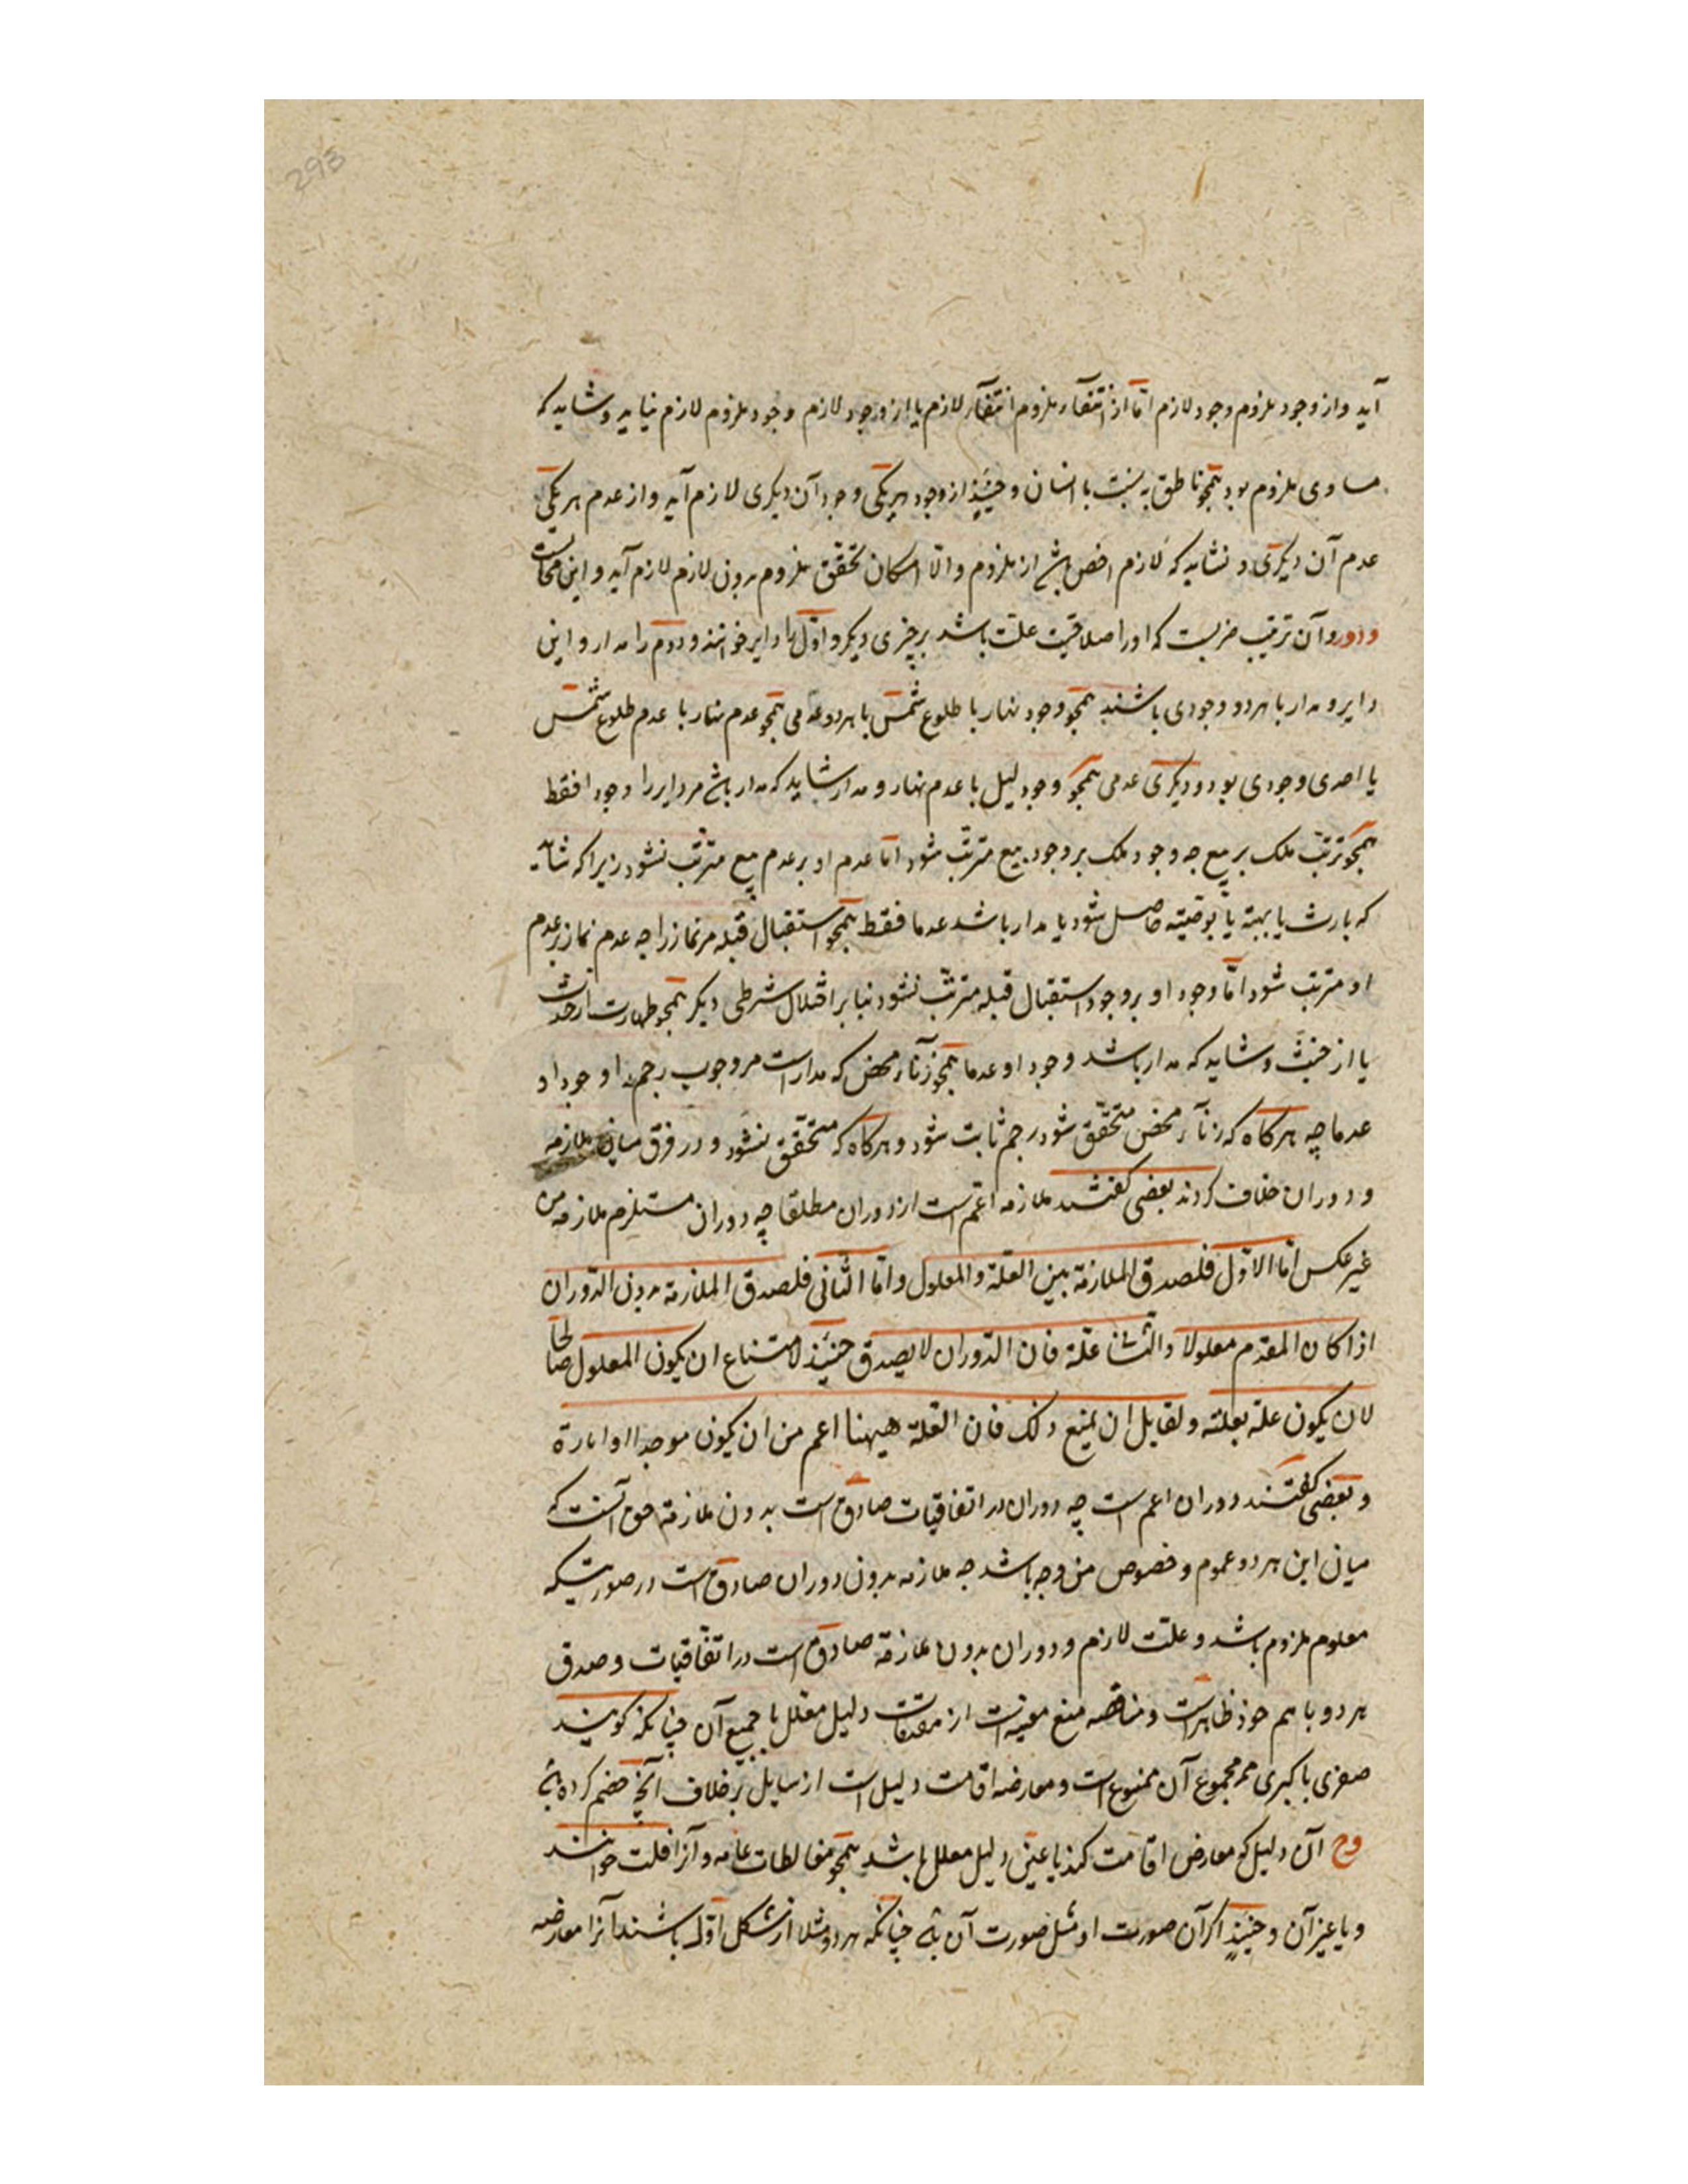 293
آید و از وجود ملزوم وجود لازم اما از انتفآء ملزوم انتفآء لازم یا از وجود لازم وجود ملزوم لازم نیاید و شاید که
مساوی ملزوم بود همچو ناطق به نسبت با انسان و حینئذ از وجود هر یکی وجود آن دیگری لازم آید و از عدم هر یکی
عدم آن دیگری و نشاید که لازم اخص باشد از ملزوم و الا امکان تحقق ملزوم بدون لازم لازم آید و این محالست
و دور و آن ترتیب چیزیست که او را صلاحیت علت باشد بر چیزی دیگر و اول را دایر خوانند و دوم را مدار و این
دایر و مدار یا هر دو وجودی باشند همچو وجود نهار با طلوع شمس یا هر دو عدمی همچو عدم نهار با عدم طلوع شمس
یا احدی وجودی بود و دیگری عدمی همچو وجود لیل با عدم نهار و مدار شاید که مدار باشد مر دایر را وجودا فقط
همچو ترتب ملک بر بیع چه وجود ملک بر وجود بیع مترتب شود اما عدم او بر عدم بیع مترتب نشود زیرا که شاید
که بارث یا بهبه یا بوصیته حاصل شود یا مدار باشد عدما فقط همچو استقبال قبله مر نماز را چه عدم نماز بر عدم
او مترتب شود اما وجود او بر وجود استقبال قبله مترتب نشود بنا بر اختلال شرطی دیگر همچو طهارت از حدث
یا از خبث و شاید که مدار باشد وجودا و عدما همچو زنآء محض که مدار است مر وجوب رجم را وجودا و
عدما چه هرکاه که زنآء محض متحقق شود رجم ثابت شود و هرکاه که متحقق نشود و در فرق میان ملازمه
و دوران خلاف کردند بعضی کفتند ملازمه اعم است از دوران مطلقا چه دوران مستلزم ملازمه من
غیر عکس اما الاول فلصدق الملازمة بین العلة والمعلول واما الثانی فلصدق الملازمه بدون الدوران
اذا کان المقدم معلولا والتالی علة فان الدوران لا یصدق حینئذ لامتناع ان یکون المعلول صالحا
لان یکون علة بعلته ولقایل ان یمنع ذلک فان العلة هیهنا اعم من ان یکون موجدا او امارة
و بعضی کفتند دوران اعم است چه دوران در اتفاقیات صادق است بدون ملازمة حق آنست که
میان این هر دو عموم و خصوص من وجه باشد چه ملازمه بدون دوران صادق است در صورتیکه
معلوم ملزوم باشد و علت لازم و دوران بدون ملازمة صادق است در اتفاقیات و صدق
هر دو با هم خود ظاهر است و مناقضه منع معینه است از مقدمات دلیل معلل یا جمیع آن چنانکه کویند
صغری با کبری مجموع آن ممنوع است و معارضه اقامت دلیل است از سایل بر خلاف آنچه خصم کرده باشد
وح آن دلیل که معارض اقامت کند یا عین دلیل معلل باشد همچو مغالطات عامه و آنرا قلب خوانند
و یا غیر آن و حینئذ اکر آن صورت او مثل صورت آن باشد چنانکه هر دو مثلا از شکل اول باشند آنرا معارضه